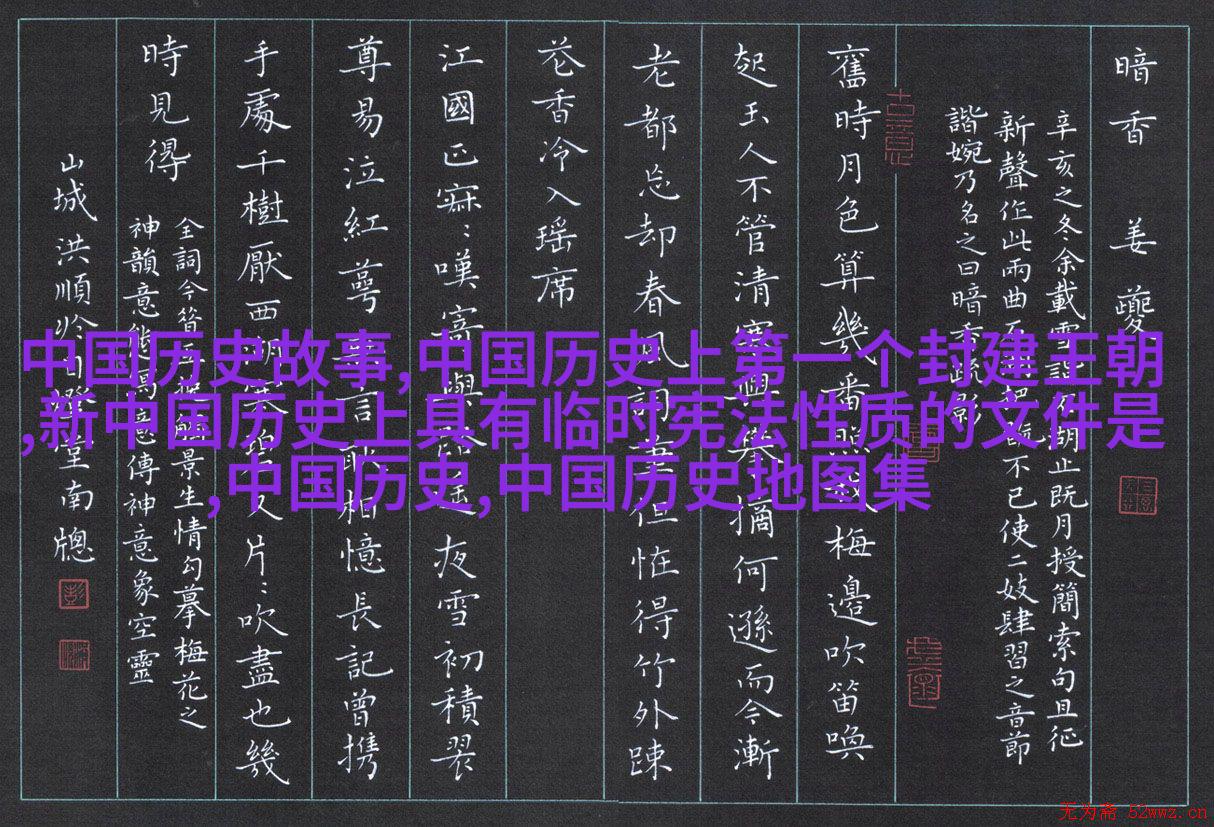 暗香 姜夔
辛亥之冬余載雪詣石湖止既月授簡索句且征
新聲作此兩曲石湖把玩不已使二妓肆習之音節
諧婉乃名之曰暗香疏影
舊時月色算幾番照我梅邊吹笛喚
起玉人不管清寒與攀摘何遜而今漸
老都忘却春風詞筆但怪得竹外踈
花香冷入瑶席
江國正寂:嘆寄與路遥夜雪初積翠
尊易泣紅萼無言耿相憶長記曾携
手處千樹厭西湖寒碧又片:吹盡也幾
時見得
全詞今昔觸景生情勾摹梅花之
神韻意傳神意象空靈
山城洪順堂南牕
中国历史故事,中国历史上第一个封建王朝
,新中国历史上具有临时宪法性质的文件是
,中国历史,中国历史地图集
古意
无为斋 52wwz.cn